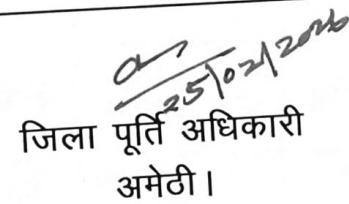 25/02/2026
जिला पूर्ति अधिकारी
अमेठी।